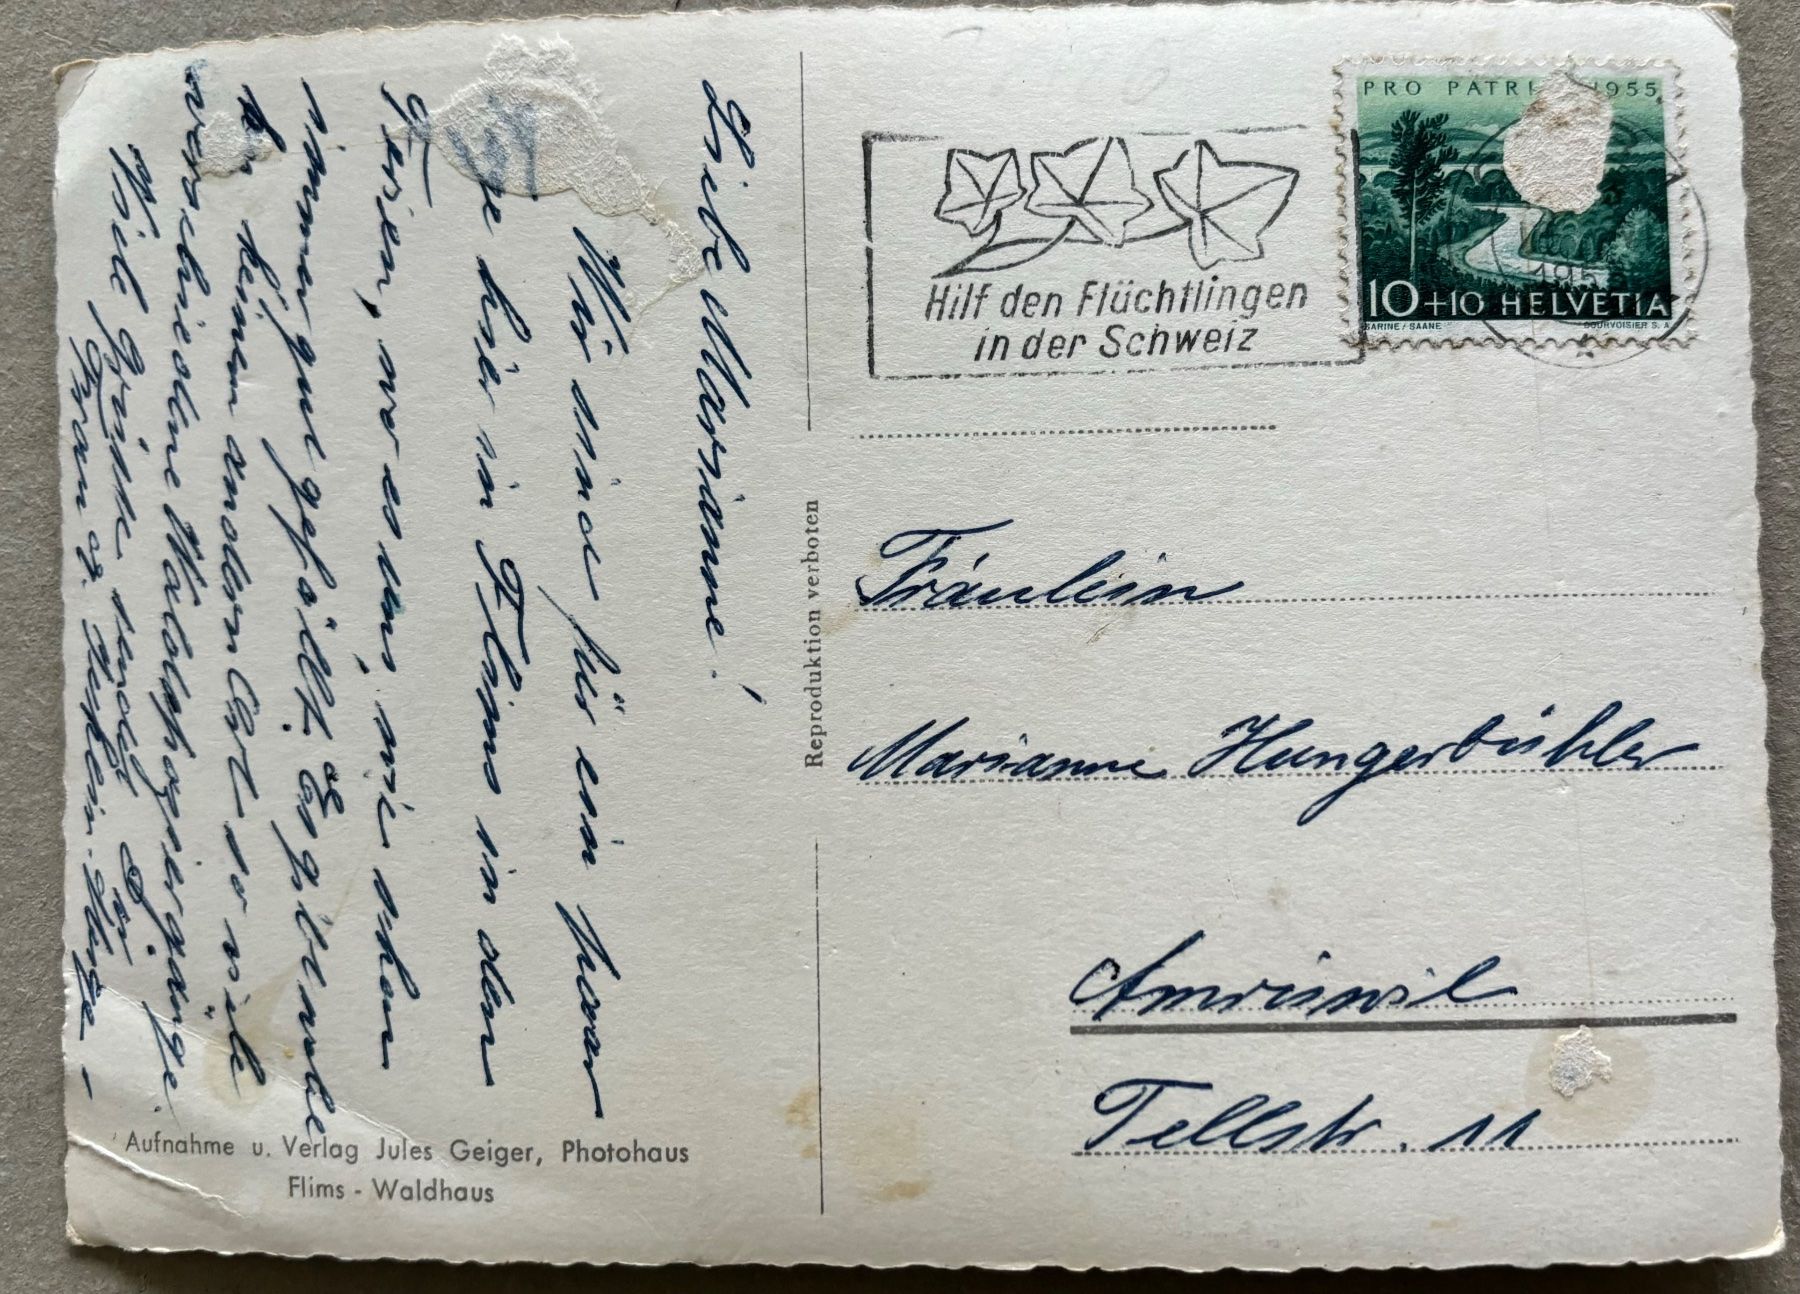 Liebe Marianne!
Wir sind für ein paar
hier in Flims in den
Ferien, wo es uns wie schon
immer gut gefällt. Es gibt wohl
keinen andern Ort so viele
verschiedene Waldspaziergänge.
Viele Grüsse sendet Dir
Fam.
Aufnahme u. Verlag Jules Geiger, Photohaus
Flims - Waldhaus
Reproduktion verboten
Hilf den Flüchtlingen
in der Schweiz
PRO PATRI 1955
10+10 HELVETIA
SARINE / SAANE COURVOISIER S. A.
Fräulein
Marianne Hungerbühler
Amriswil
Tellstr. 11